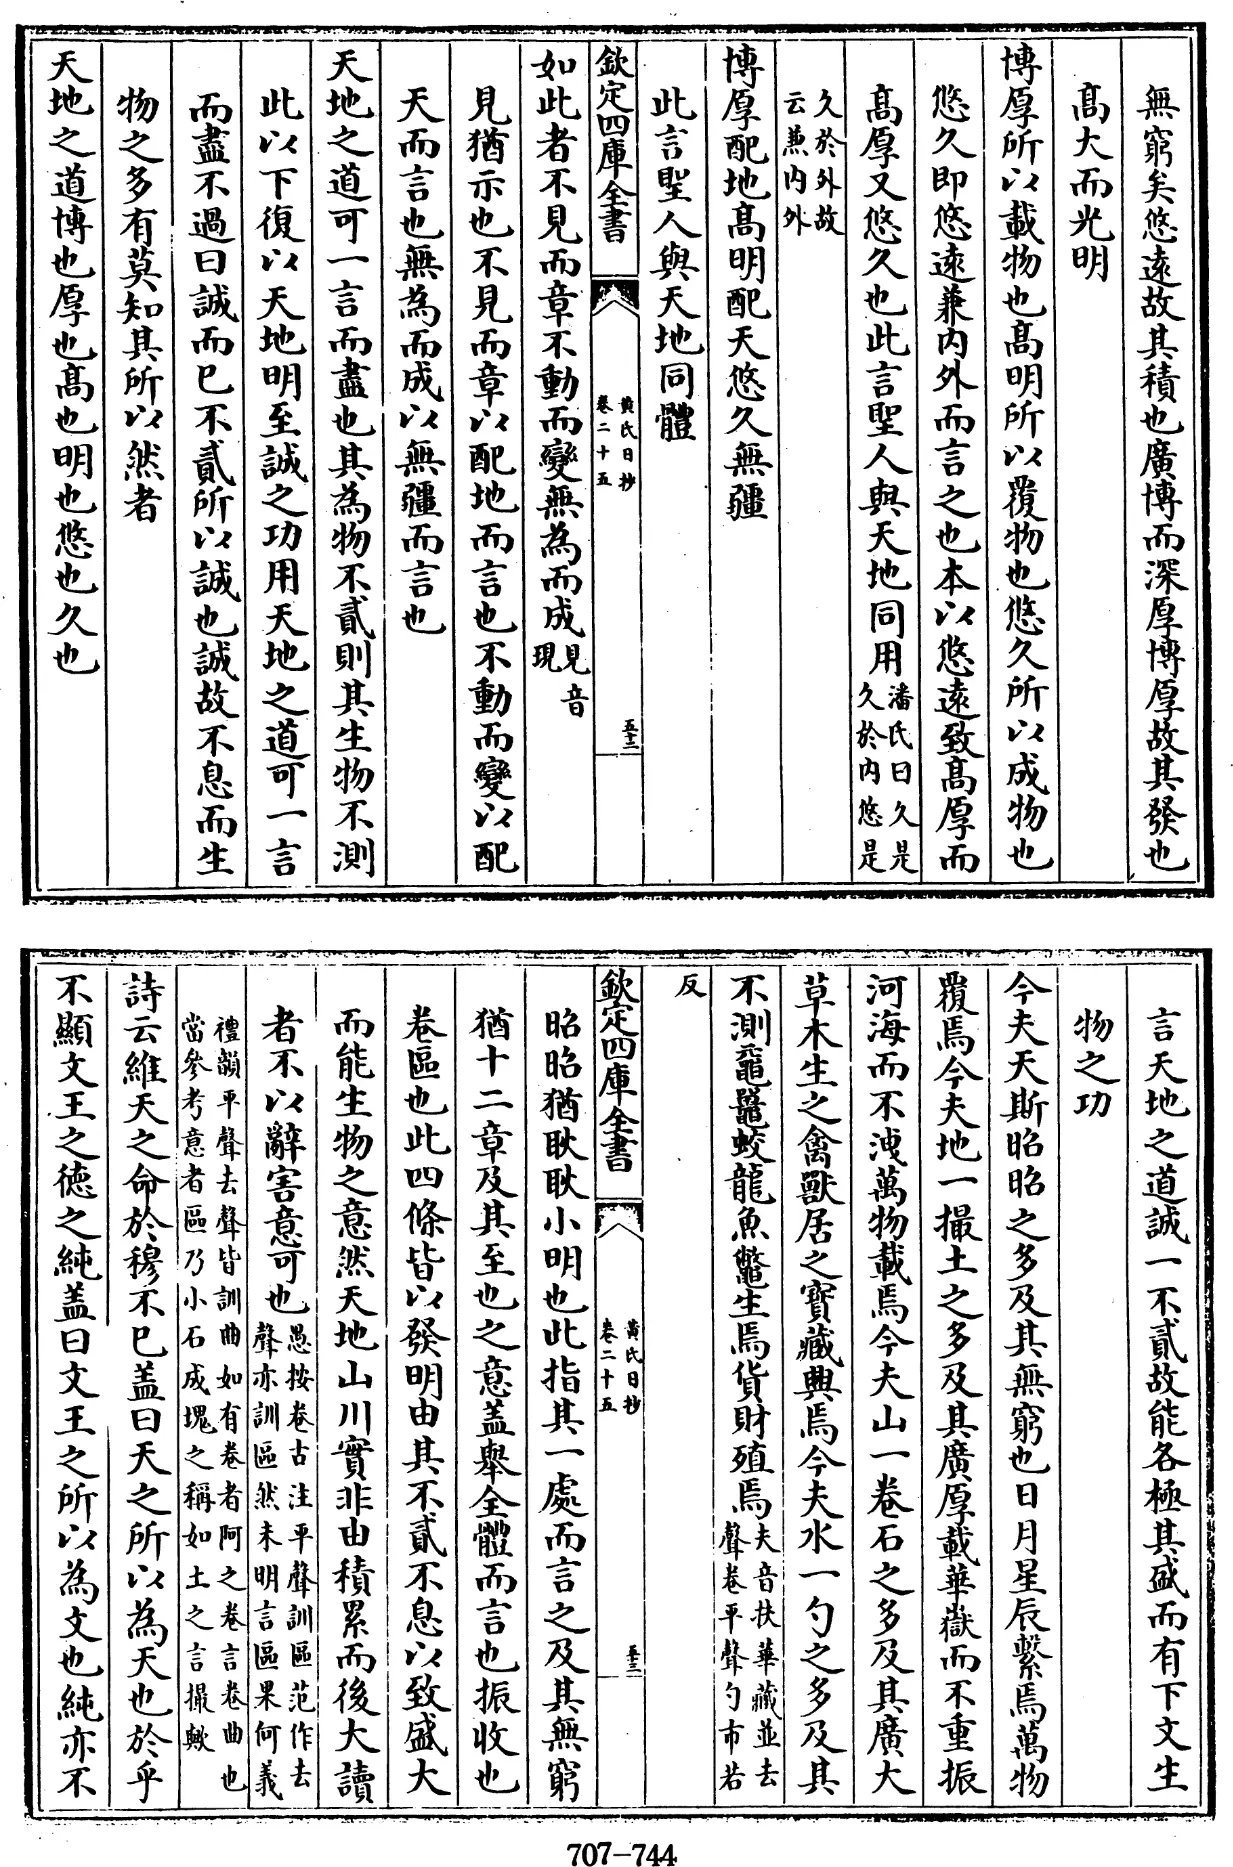 無窮矣悠遠故其積也廣博而深厚博厚故其發也
高大而光明
博厚所以載物也高明所以覆物也悠久所以成物也
悠久即悠遠兼內外而言之也本以悠遠致高厚而
高厚又悠久也此言聖人與天地同用潘氏曰久是久於內悠是
久於外故云兼內外
博厚配地高明配天悠久無疆
此言聖人與天地同體
欽定四庫全書 黃氏日抄 卷二十五 五十三
如此者不見而章不動而變無為而成見音現
見猶示也不見而章以配地而言也不動而變以配
天而言也無為而成以無疆而言也
天地之道可一言而盡也其為物不貳則其生物不測
此以下復以天地明至誠之功用天地之道可一言
而盡不過曰誠而已不貳所以誠也誠故不息而生
物之多有莫知其所以然者
天地之道博也厚也高也明也悠也久也
言天地之道誠一不貳故能各極其盛而有下文生
物之功
今夫天斯昭昭之多及其無窮也日月星辰繫焉萬物
覆焉今夫地一撮土之多及其廣厚載華嶽而不重振
河海而不洩萬物載焉今夫山一卷石之多及其廣大
草木生之禽獸居之寶藏興焉今夫水一勺之多及其
不測黿鼉蛟龍魚鼈生焉貨財殖焉夫音扶華藏並去聲卷平聲勺市若
反
欽定四庫全書 黃氏日抄 卷二十五 五十三
昭昭猶耿耿小明也此指其一處而言之及其無窮
猶十二章及其至也之意蓋舉全體而言也振收也
卷區也此四條皆以發明由其不貳不息以致盛大
而能生物之意然天地山川實非由積累而後大讀
者不以辭害意可也愚按卷古注平聲訓區范作去聲亦訓區然未明言區果何義
禮韻平聲去聲皆訓曲如有卷者阿之卷言卷曲也當參考意者區乃小石成塊之稱如土之言撮歟
詩云維天之命於穆不已蓋曰天之所以為天也於乎
不顯文王之德之純蓋曰文王之所以為文也純亦不
707-744